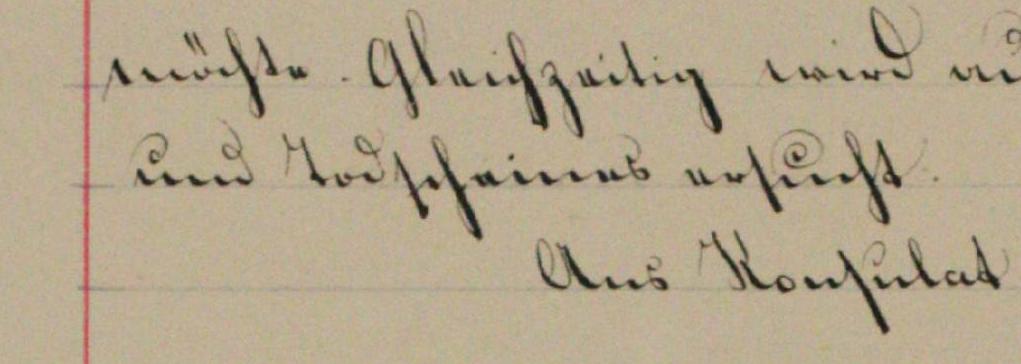 möchte. Gleichzeitig wird au
und Todscheines ersucht.
Das Konsulat